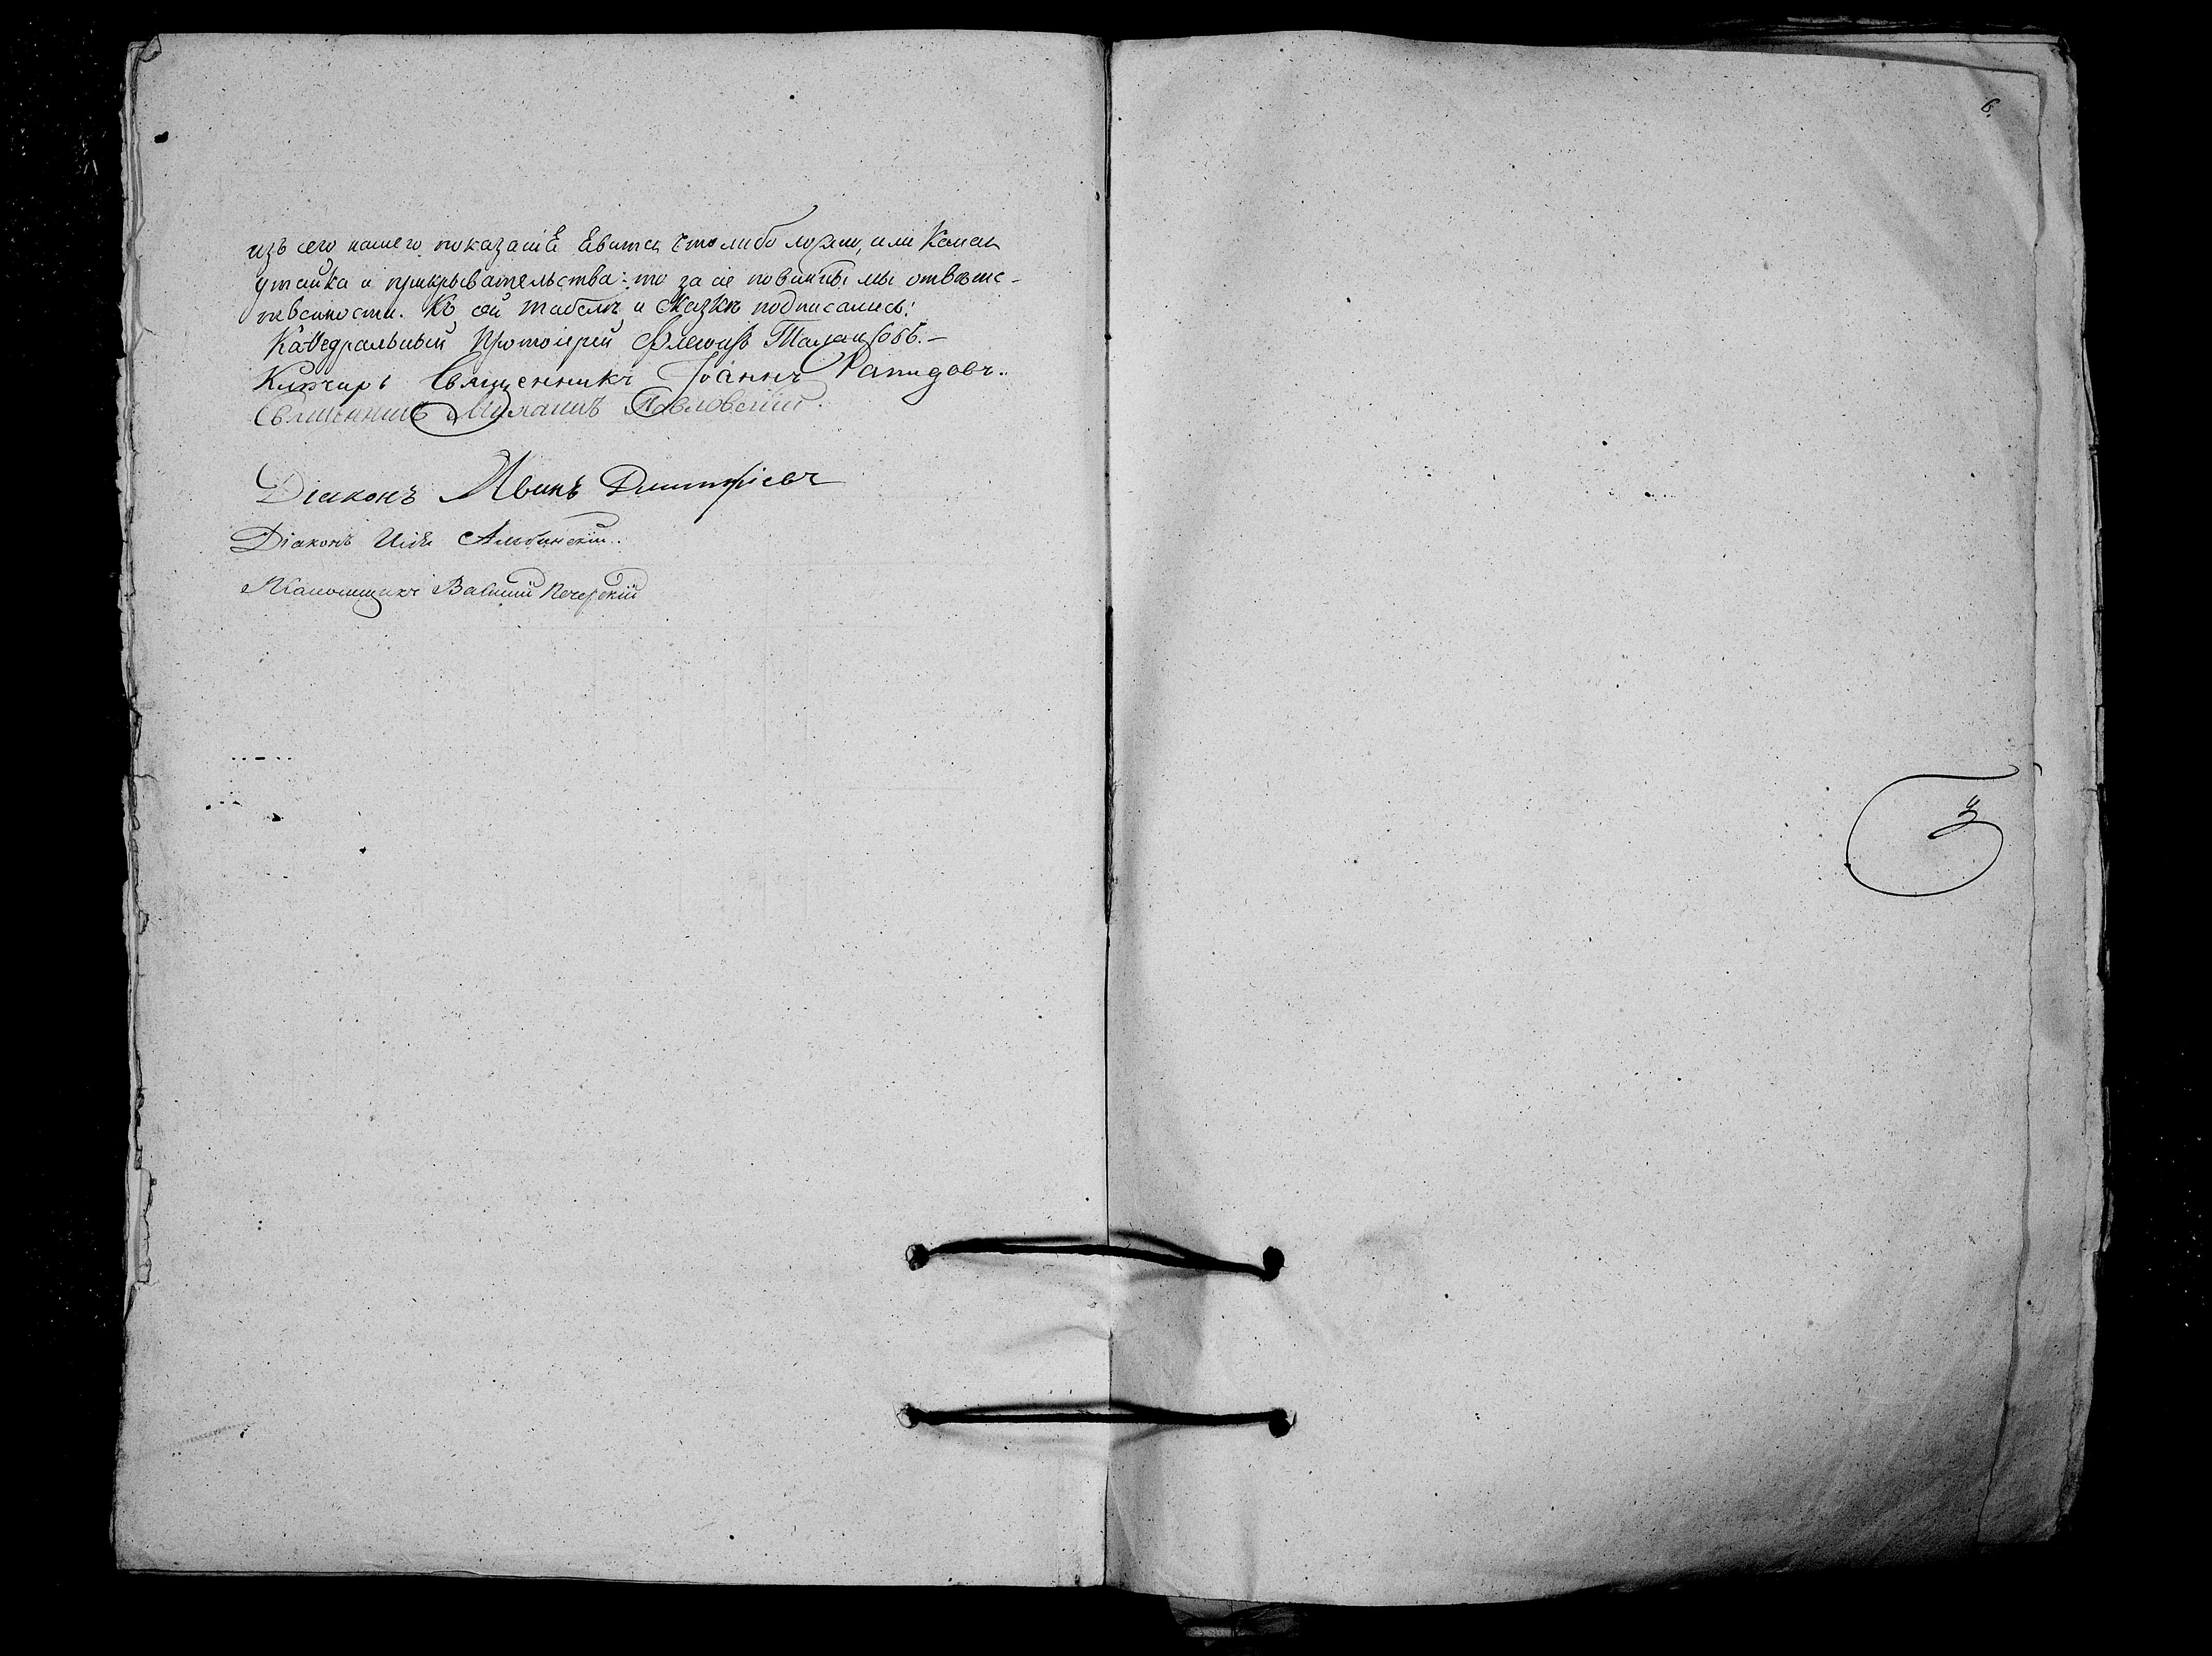 изъ сего нашего показанія явится что либо ложно, или какая
утайка и прикрывательства: то за сіе повинны мы отвѣтс-
твенности. Къ сей табелѣ и сказкѣ подписались:
Каѳедральный Протоіерей
Ключарь Священникъ Іоаннъ Рапидовъ.
Священникъ Михаилъ Павловскій.
Діаконъ Иванъ Димитріевъ
Діаконъ Илія Альбинскій.
Василій Печерскій
6.